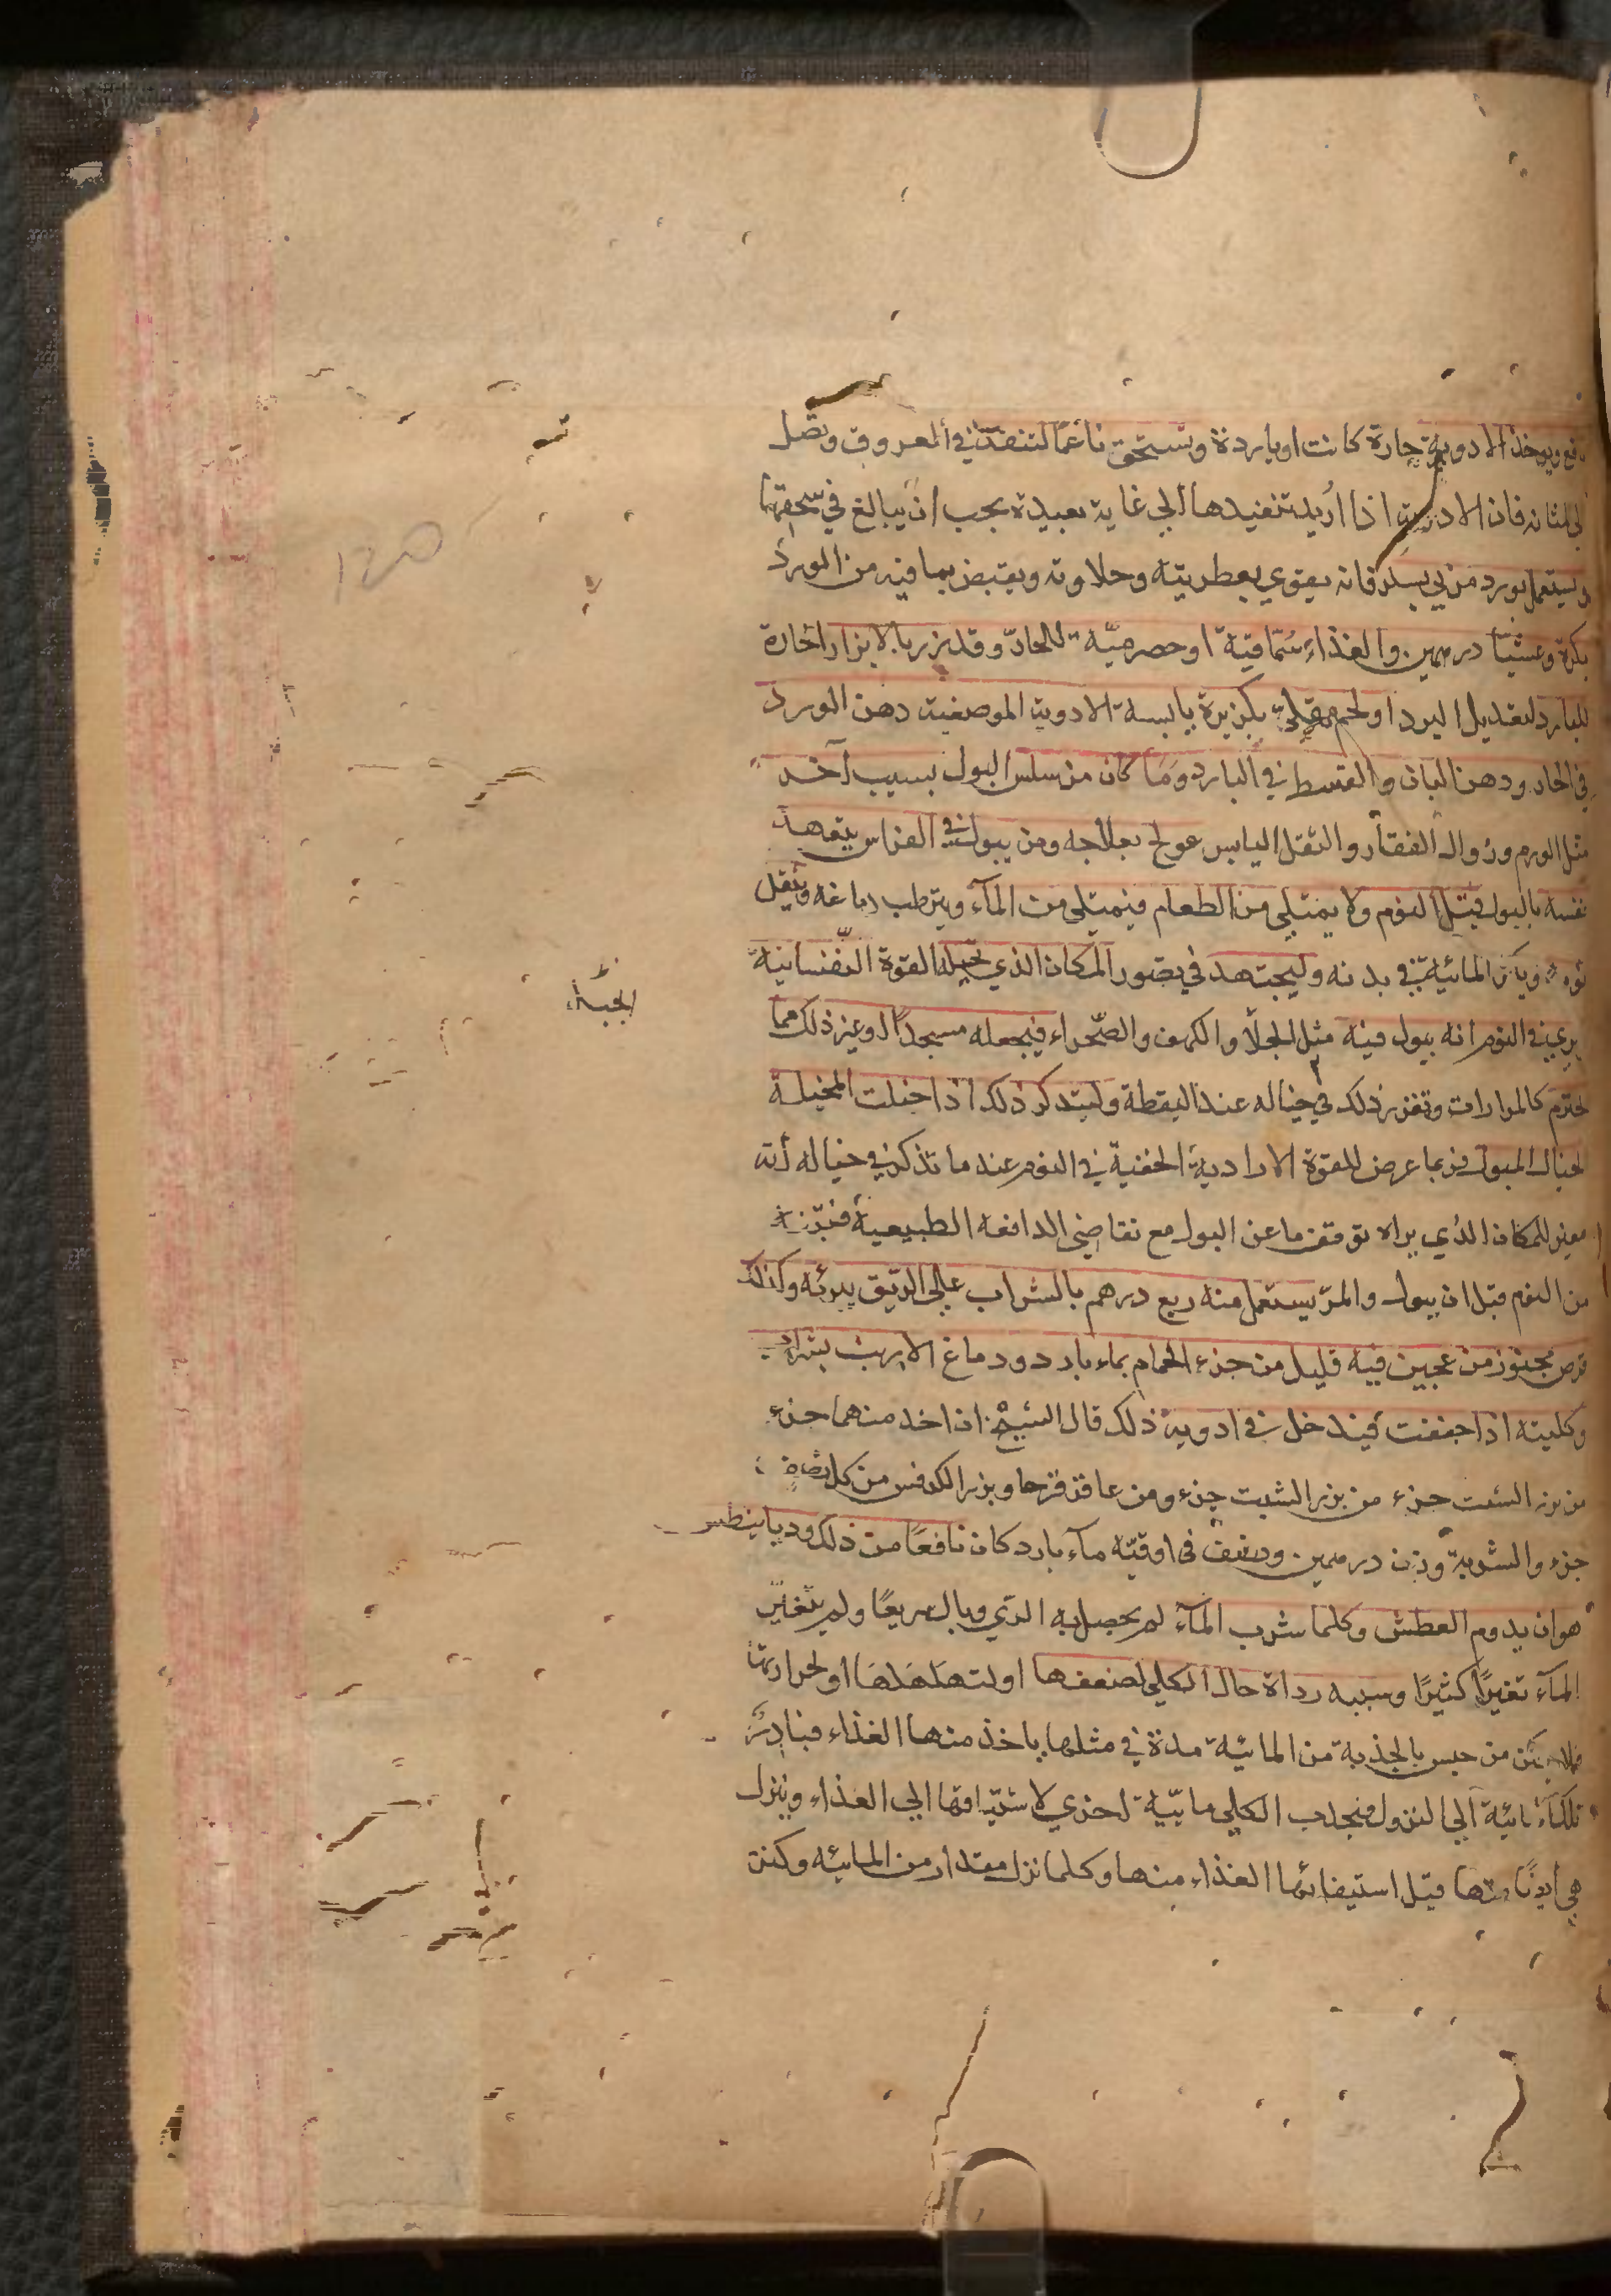 ويوخذ الادوية حارة كانت او باردة وتستحق ناعمًا لتنفذ في العروق وتصل
فان الادوية اذا اُريد تنفيدها الي غاية بعيدة يجب ان يبالغ في سحقها
فانه يقوي بعطريته وحلاوته ويقبض بما فيه من الورد
بكرة وعشيًا درهمين. والغذاء سُمّاقيّة او حصرميّة للحادّ وقد بزر بالابزار الحارة
للبارد لتعديل البرد او لحم مقلي بكزبرة يابسة الادوية الموصفية دهن الورد
في الحار ودهن البان والقسط في البارد ومَا كان من سلس البول بسبب آخر
مثل الورم وزوال الفقار والثقل اليابس عولج بعلاجه ومن يبول في الفراش يتعهد
نفسه بالبول قبل النوم ولا يمتلي من الطعام فيمتلي من المآء ويترطب دماغه ويثقل
المائية في بدنه وليجتهد في تصور المكان الذي تخيله القوة النّفسانية
يري في النوم انه يبول فيه مثل الخلآ والكهف والصّحراء فيجعله مسجدًا او غير ذلك مما
الجبّانة
وتقرر ذلك في خياله عند اليقظة وليتدكر ذلك اذا خيلت المخيلة
عرض للقوة الارادية الخفية في النوم عند ما تذكر في خياله أنه
للمكان الذي يراه توقف ما عن البول مع تقاضي الدافعه الطبيعية
من النوم قبل ان يبول والمرّ يستعمل منه ربع درهم بالشراب علي الريق يبرئه وكذلك
قرص مخبوز من عجين فيه قليل من خرء الحمام بماء بارد ودماغ الارنب بشراب
وكليته اذا جففت فيدخل في ادوية ذلك قال الشيخ ان اخد منهما جزء
من بزر الشبت جزء ومن عاقر قرحا وبزر الكرفس من كل نصف
جزء والشربة وزن درهمين. ونصف في اوقيّه مآء بارد كان نافعًا من ذلك وديابيطس
هو ان يدوم العطش وكلما شرب المآء لم يحصل به الري وبال سريعًا ولم يتغيّر
المآء تغيرًا كثيرًا وسببه رداة حال الكلي لضعفها او لتهلهلهَا او لحرارتها
من حبس بالجذبة من المائية مدة في مثلها ياخذ منها الغذاء فبادر
تلك المائية الي النزول فيجدب الكلي مائيّة اخري لاشتياقها الي الغذاء وينزل
هي أيضًا منها قبل استيفائها الغذاء منها وكلما نزل مقدار من المائيه وكنت